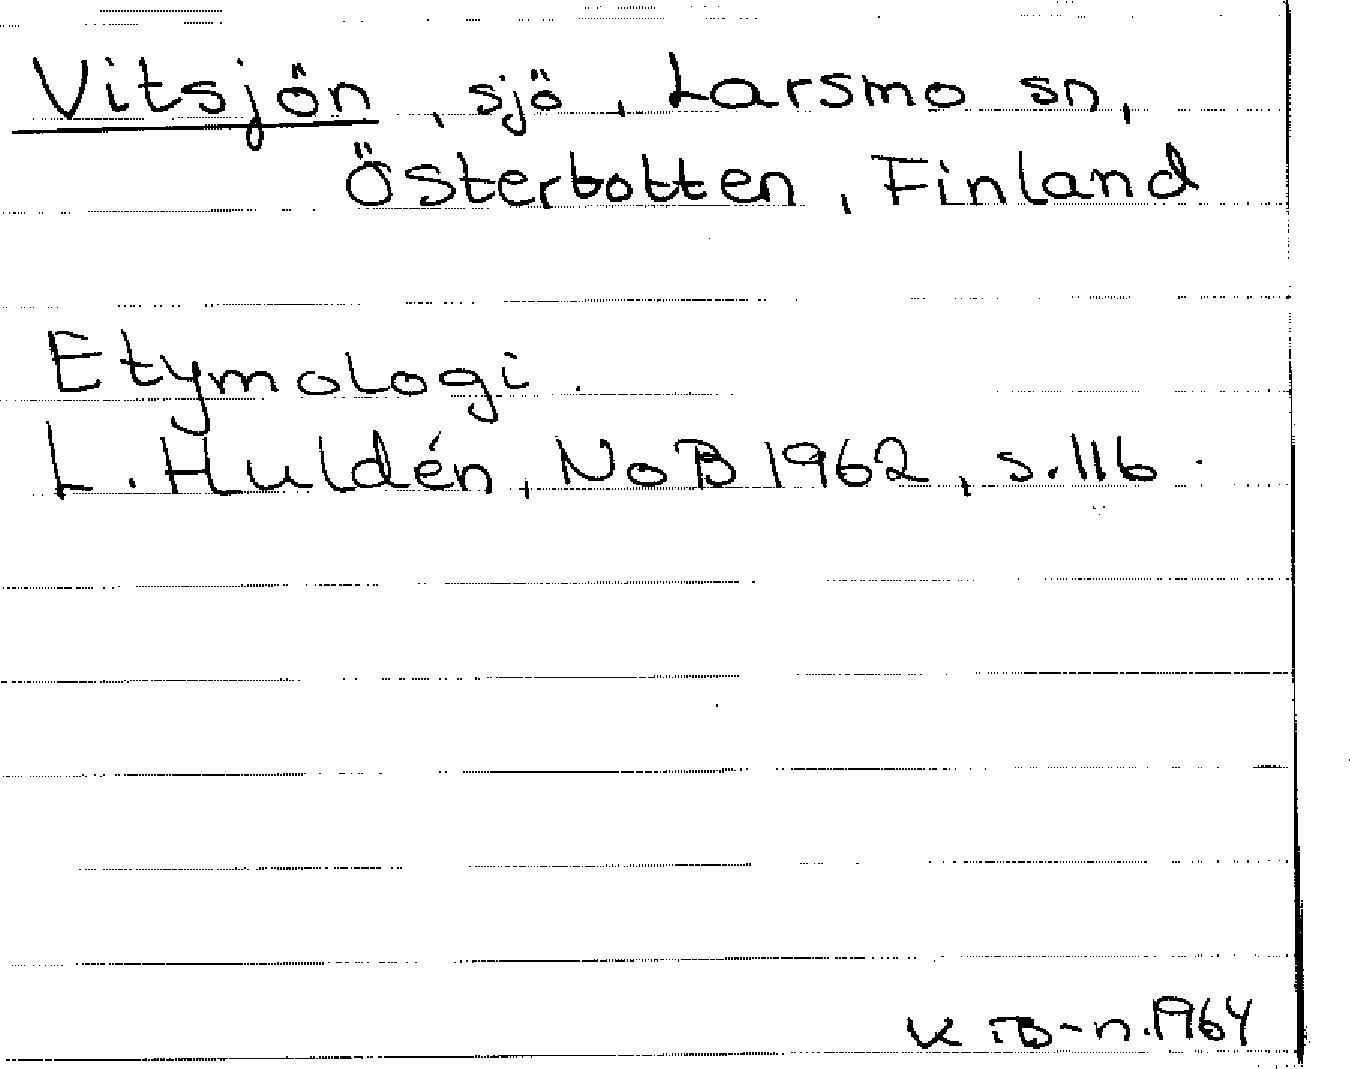 Vitsjön, sjö, Larsmo sn,
Österbotten, Finland
Etymologi.
L. Huldén, NoB 1962, s.116.
K B-n.1964